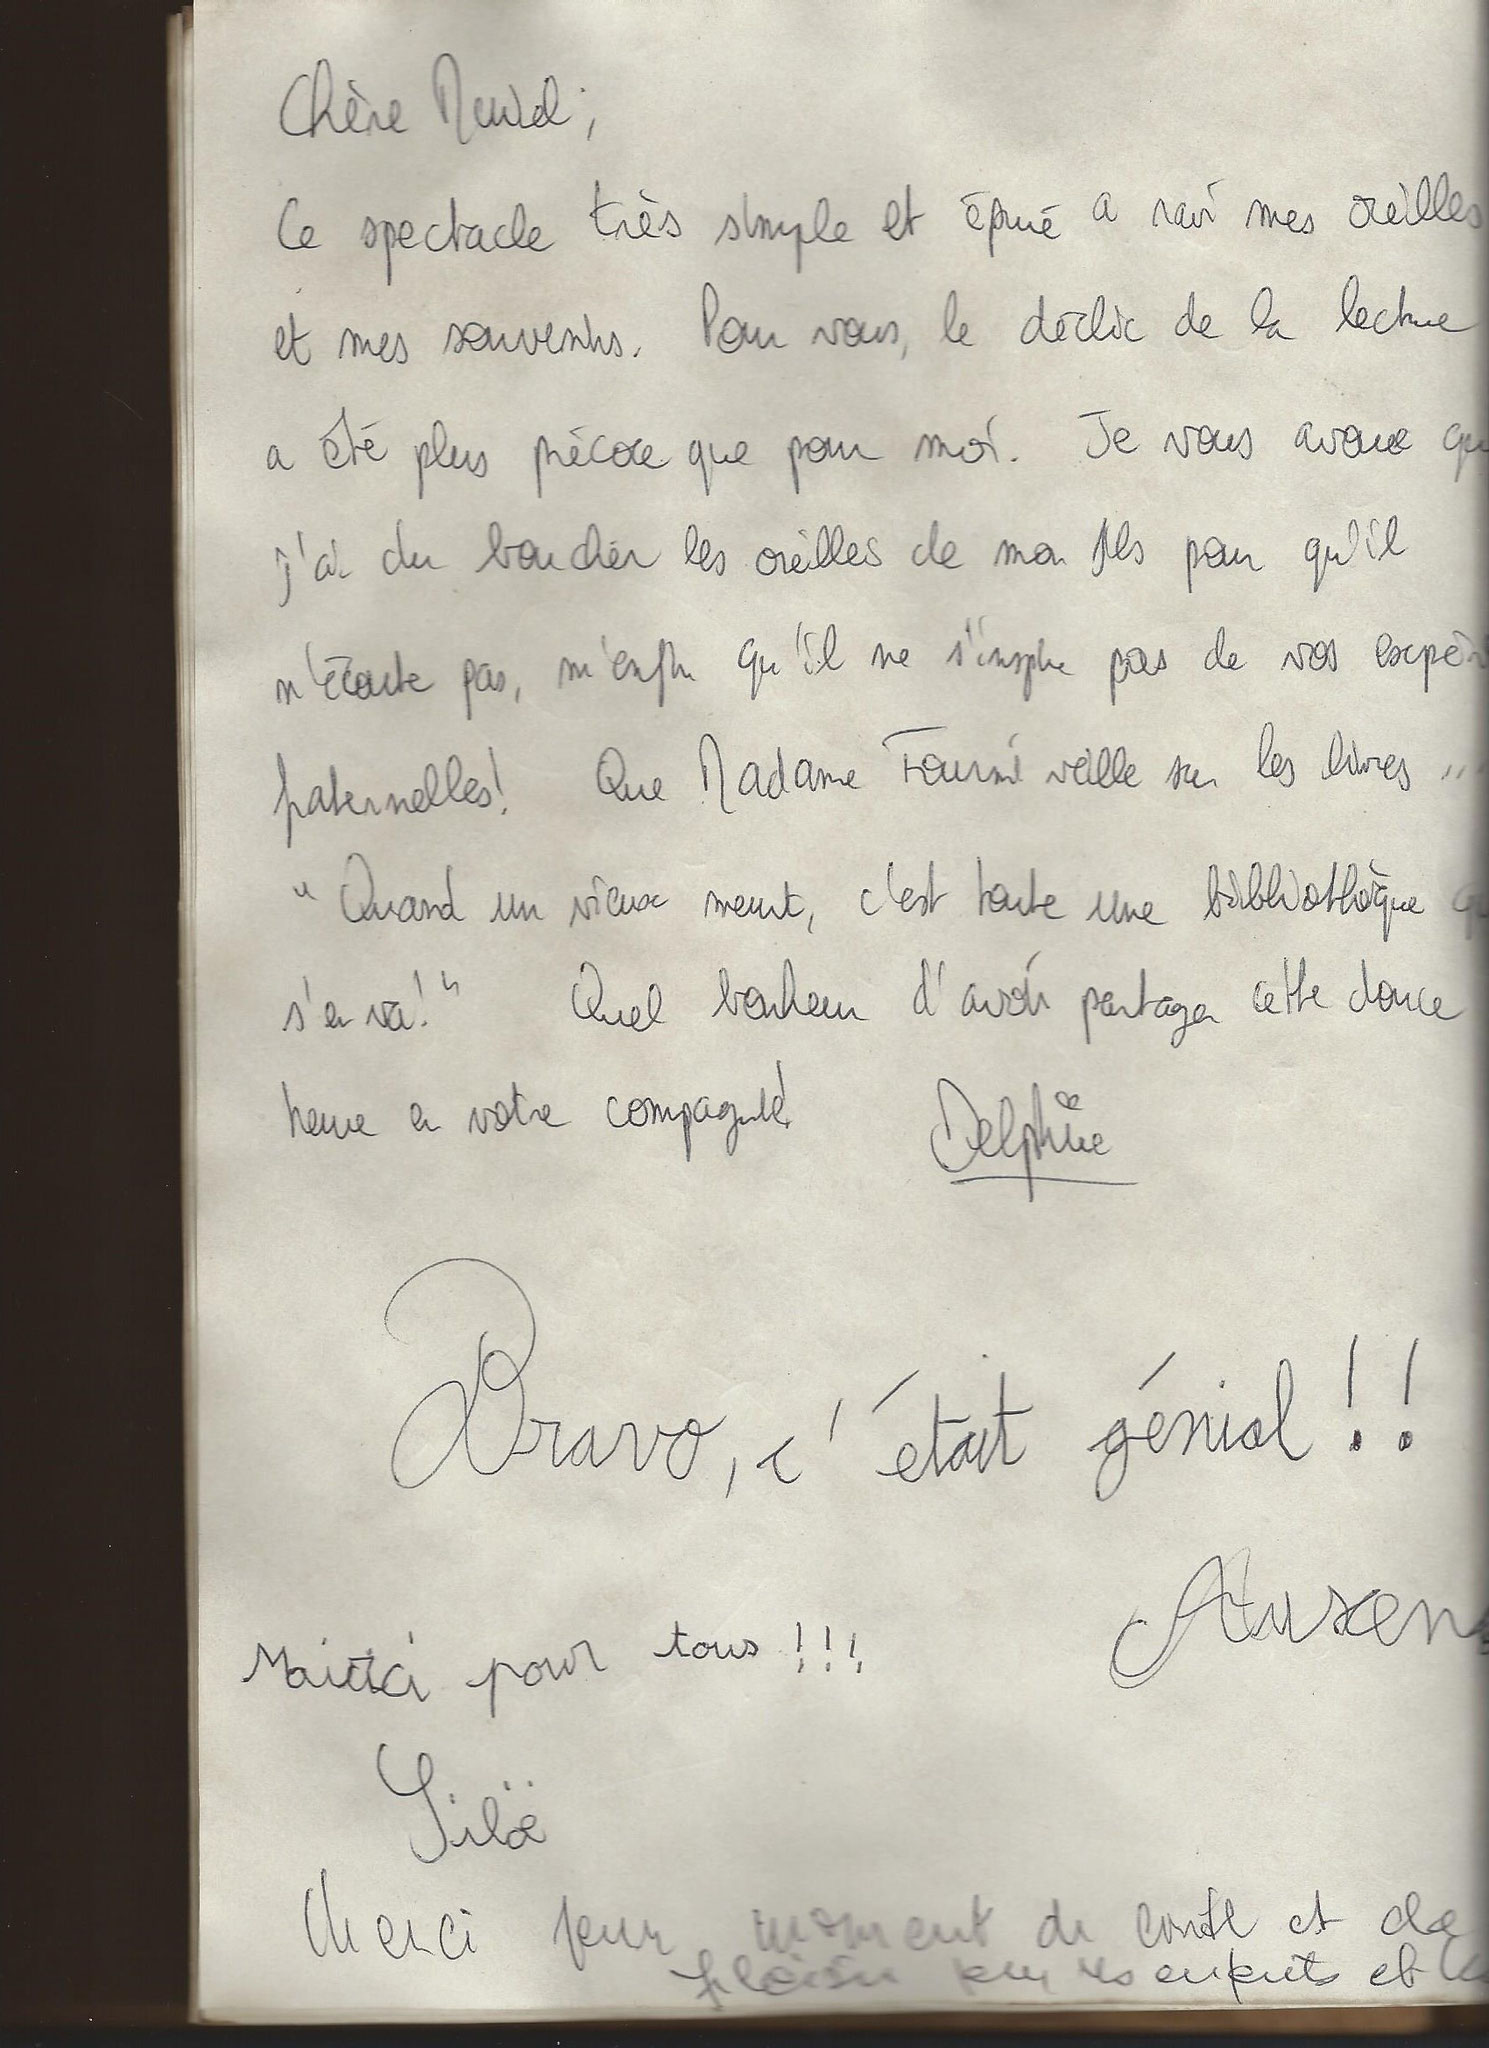 Chère
Ce spectacle très simple et épuré a ravi mes oreilles
et mes souvenirs. Pour vous, le déclic de la lecture
a été plus précoce que pour moi. Je vous avoue
j'ai du boucher les oreilles de mon fils pour qu'il
n'écoute pas, m'enfin qu'il ne s'inspire pas de vos
fraternelles! Que Madame Fourmi veille sur les livres
"Quand un vieux meurt, c'est toute une bibliothèque
s'en va!" Quel bonheur d'avoir partager cette douce
heure en votre compagnie!
Delphine
Bravo, c'était génial !!
pour tous !!!
Merci pour moment de conte et de
plaisir pour les enfants et